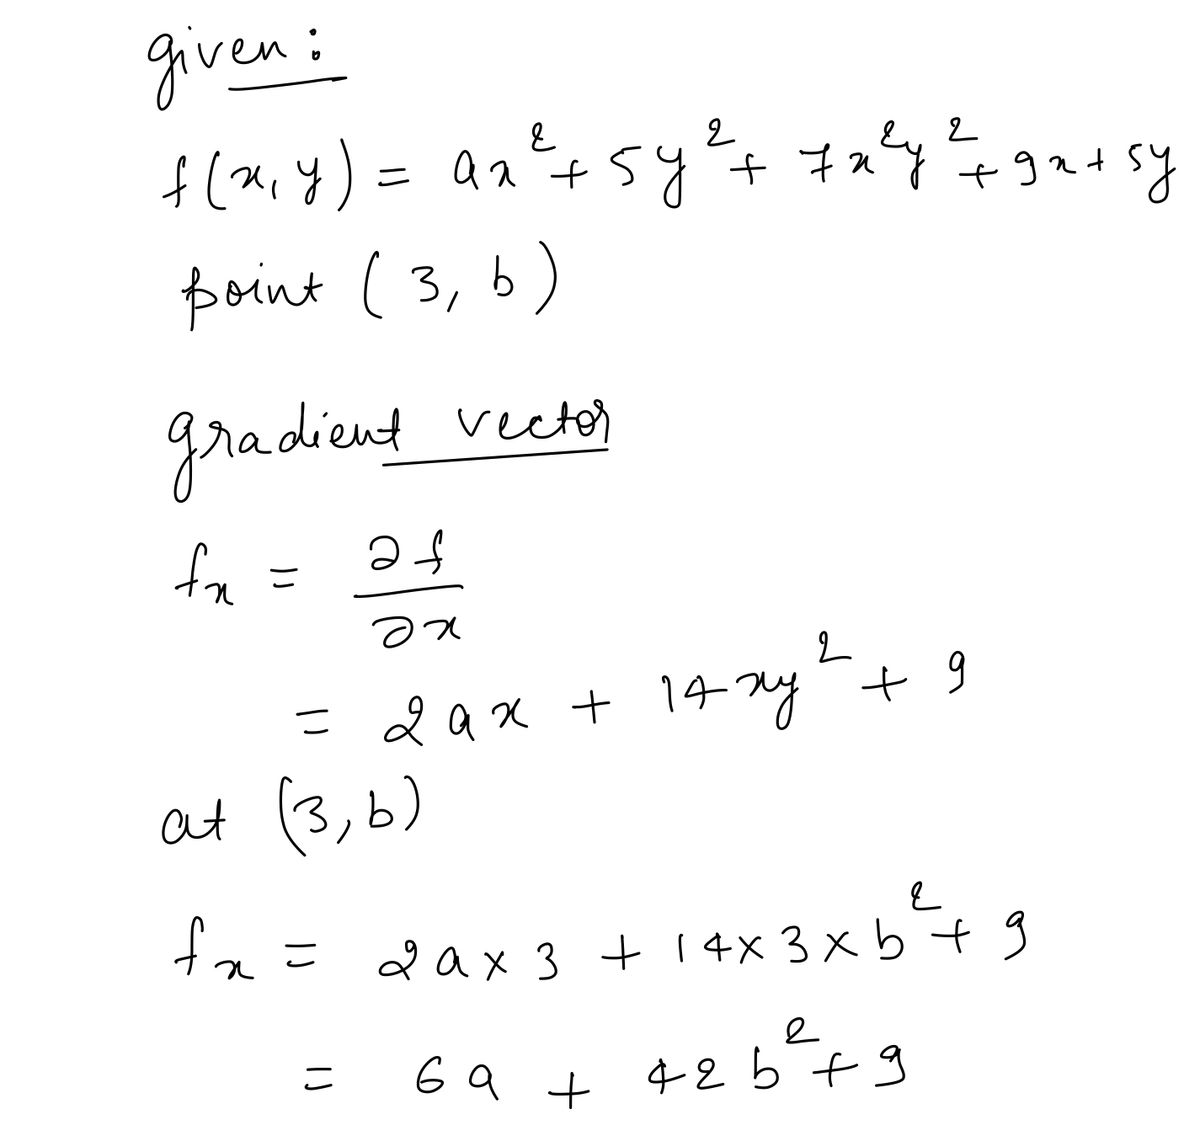 given:
f(x, y) = ax² + 5y² + 7x²y² + 9x + 5y
point (3, b)
gradient vector
fx = ∂f/∂x
= 2ax + 14xy² + 9
at (3, b)
fx = 2a×3 + 14×3×b² + 9
= 6a + 42b² + 9